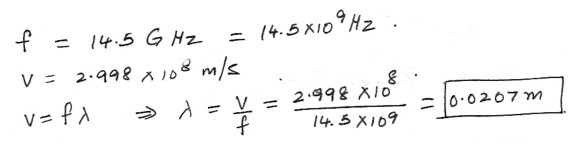 f = 14.5 G Hz = 14.5×10⁹ Hz .
V = 2.998 × 10⁸ m/s
v = fλ ⇒ λ = V/f = 2.998 ×10⁸ / 14.5 ×10⁹ = 0.0207 m